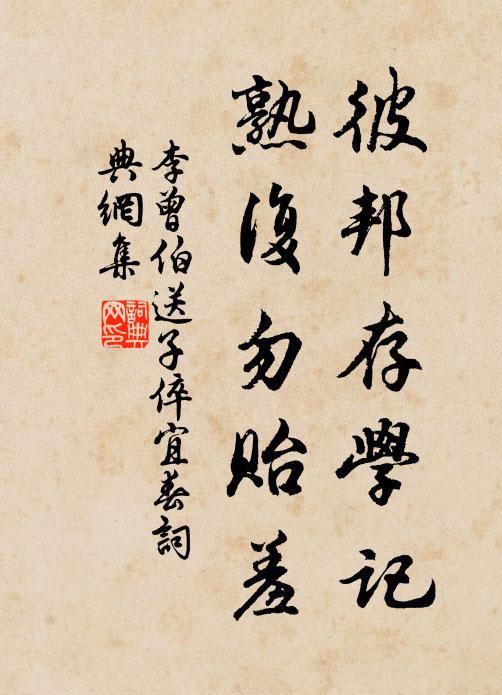 彼邦存學記
熟復勿貽羞
李曾伯送子倅宜春詞
典網集
詞典
网印